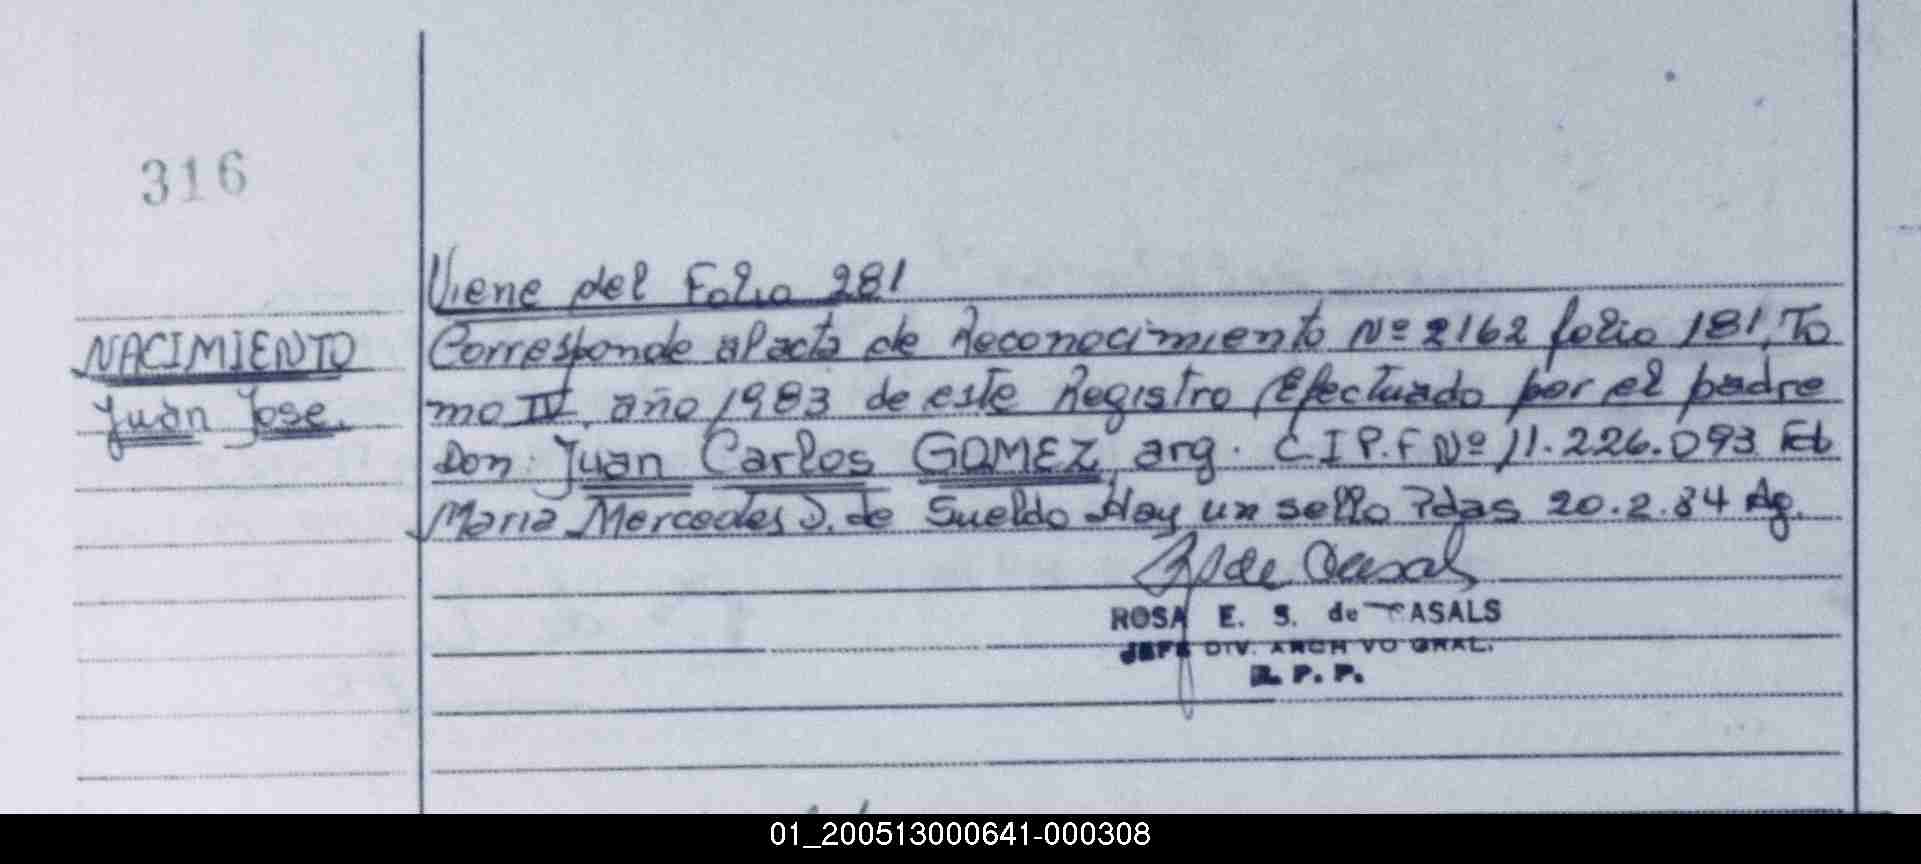 316
Viene del Folio 281
NACIMIENTO
Juan Jose.
Corresponde al acta de Reconocimiento Nº 2162 folio 181, To
mo IV, año 1983 de este Registro Efectuado por el padre
Don: Juan Carlos GOMEZ, arg. C I P.F Nº 11.226.093
Maria Mercedes S. de Sueldo Hay un sello 20.2.84
ROSA E. S. de CASALS
JEFE DIV. ARCHIVO GRAL.
R. P. P.
01_200513000641-000308